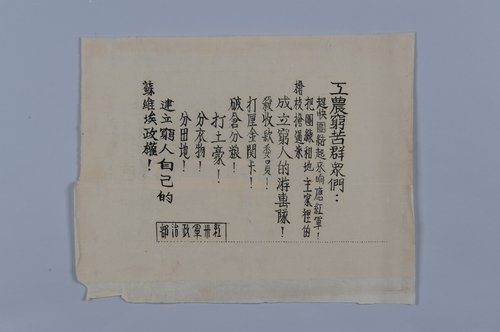 工農窮苦群眾們：
趕快團結起來响應紅軍！
把團總和地主家裡的
槍枝搶過來
成立窮人的游擊隊！
殺收款委員！
打厘金関卡！
破倉分穀！
打土豪！
分衣物！
分田地！
建立窮人自己的
蘇維埃政權！
紅卅軍政治部